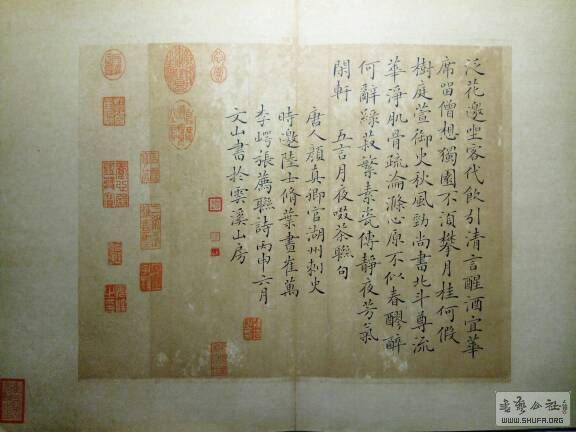 泛花邀坐客代飲引清言醒酒宜華
席留僧想獨園不須攀月桂何假
樹庭萱御史秋風勁尚書北斗尊流
華淨肌骨疏瀹滌心原不似春醪醉
何辭綠菽繁素瓷傳靜夜芳氣
閒軒 五言月夜啜茶聯句
唐人顏真卿官湖州刺史
時邀陸士脩葉晝崔萬
李崿張薦聯詩丙申六月
文山書於雲溪山房
書藝公社
WWW.SHUFA.ORG